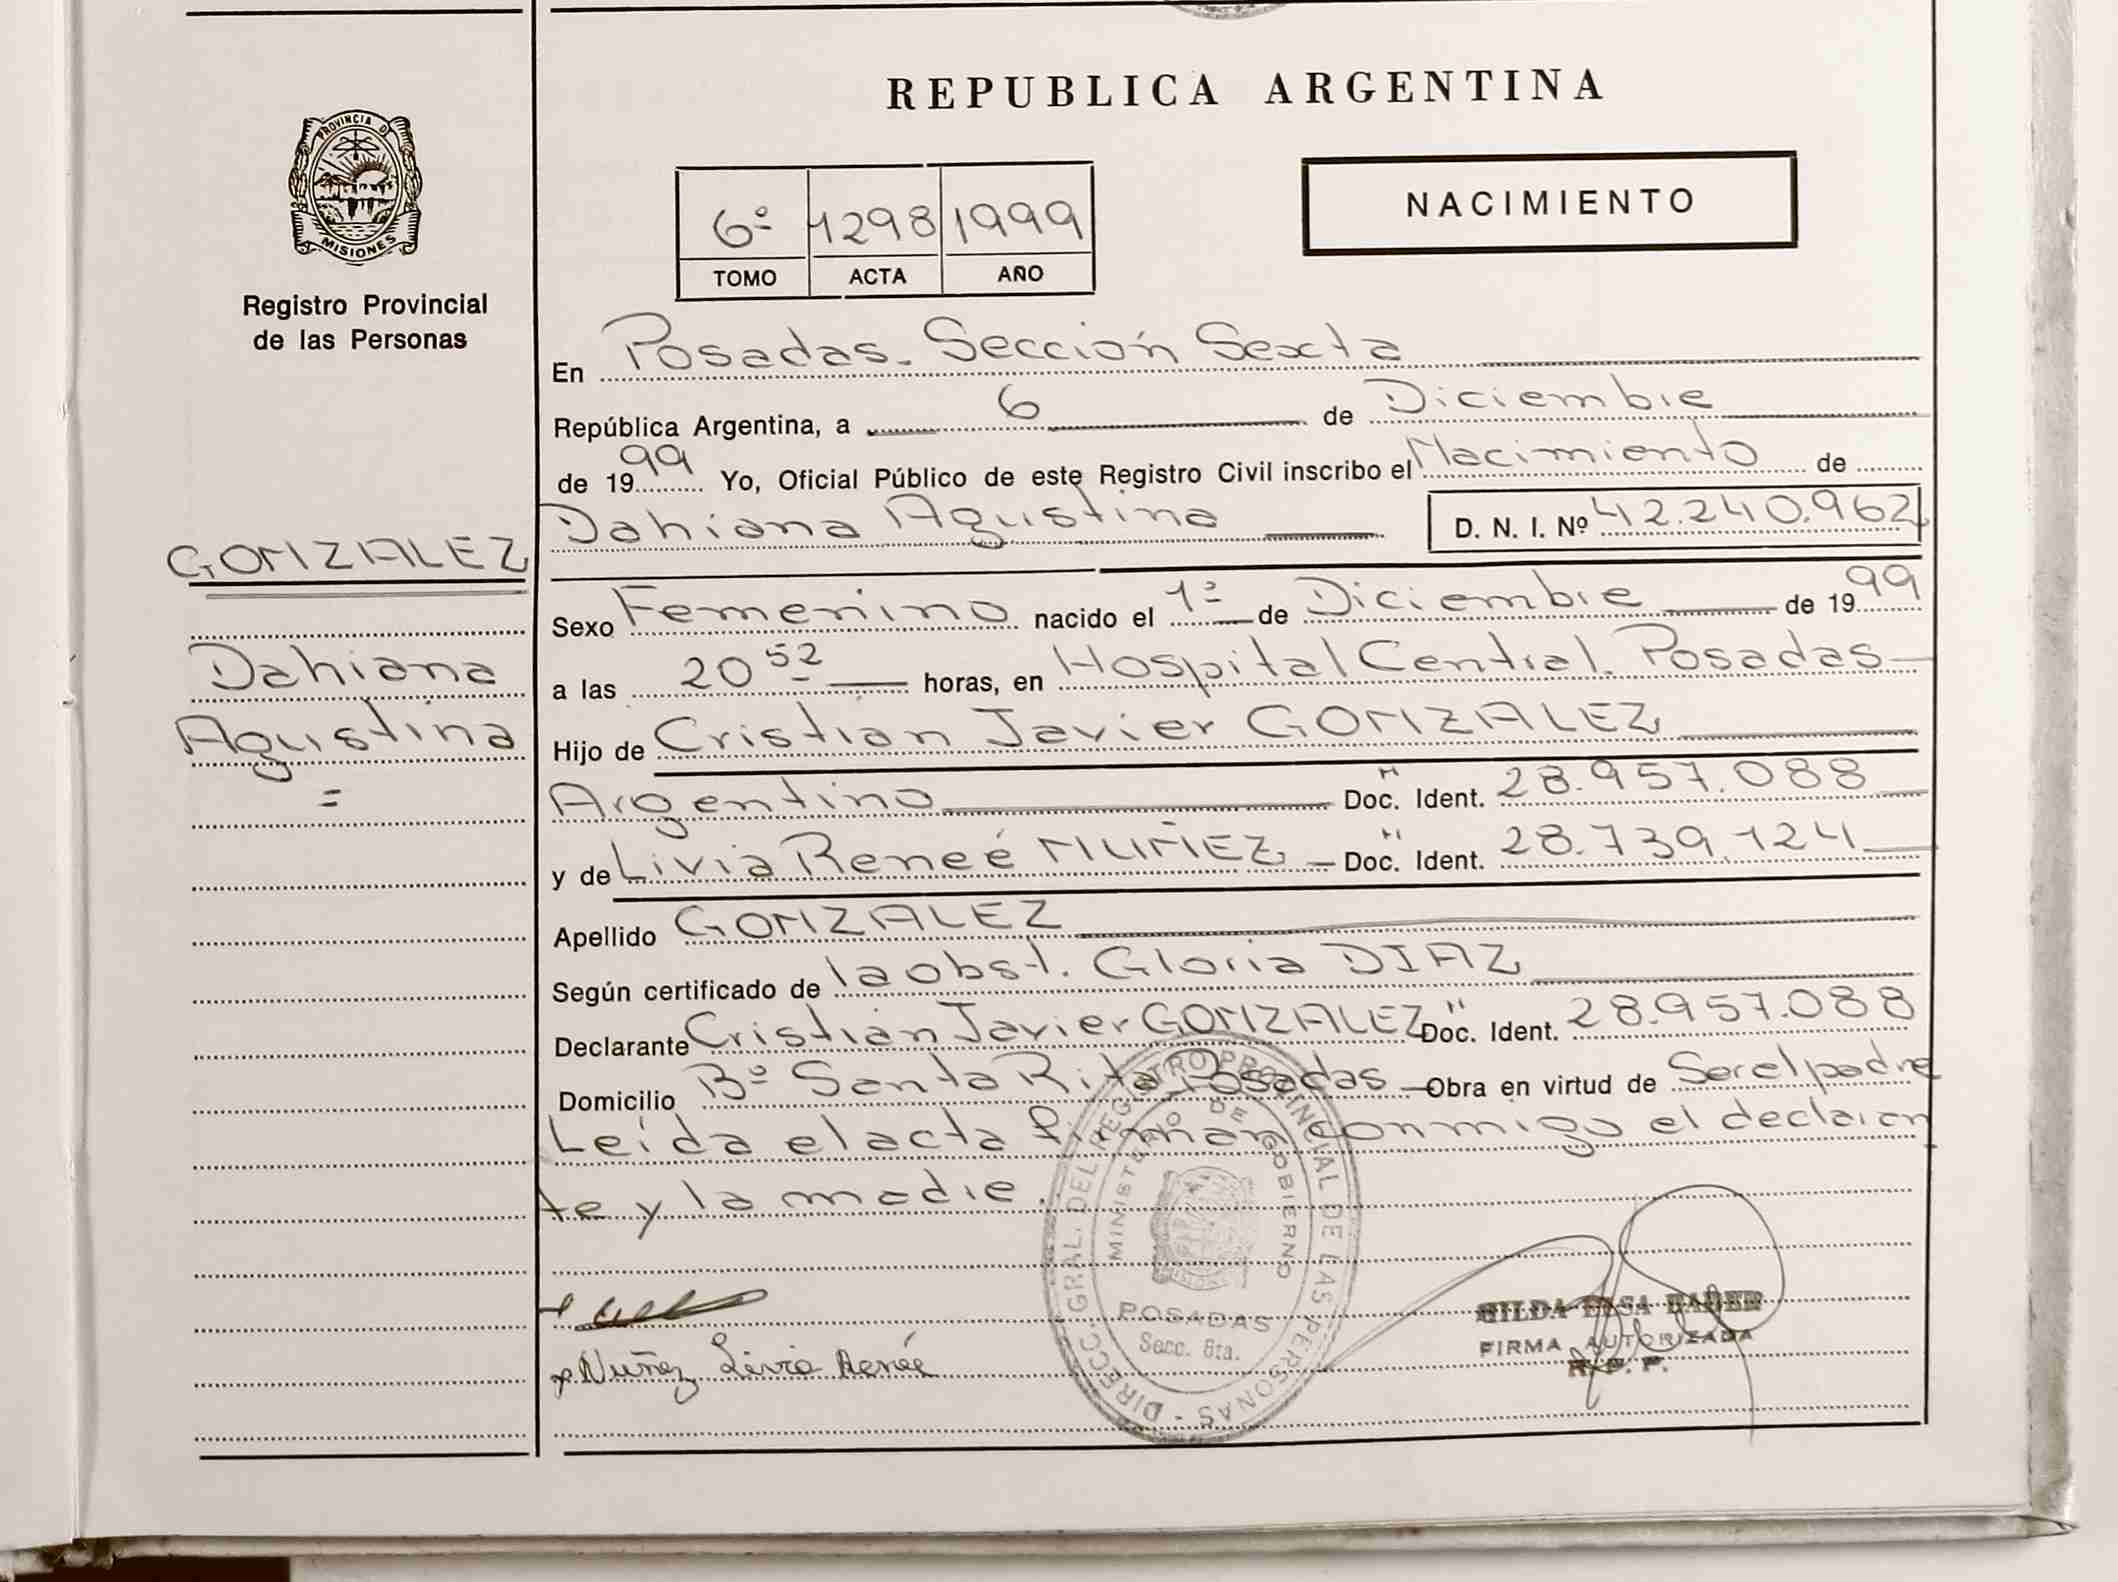 REPUBLICA ARGENTINA
PROVINCIA D
MISIONES
Registro Provincial
de las Personas
6º 1298 1999
TOMO ACTA AÑO
NACIMIENTO
En Posadas. Sección Sexta
República Argentina, a 6 de Diciembre
de 1999 Yo, Oficial Público de este Registro Civil inscribo el Nacimiento de
Dahiana Agustina D. N. I. Nº 42.240.962
GONZALEZ
Dahiana
Agustina
=
Sexo Femenino nacido el 1º de Diciembre de 1999
a las 20 52 horas, en Hospital Central. Posadas
Hijo de Cristian Javier GONZALEZ
Argentino Doc. Ident. 28.957.088
y de Livia Reneé NUÑEZ Doc. Ident. 28.739.124
Apellido GONZALEZ
Según certificado de la obst. Gloria DIAZ
Declarante Cristian Javier GONZALEZ Doc. Ident. 28.957.088
Domicilio Bº Santa Rita Posadas Obra en virtud de Ser el padre
Leída el acta firman conmigo el declaran
te y la madre.
DIRECC. GRAL. DEL REGISTRO PROVINCIAL DE LAS PERSONAS
MINISTERIO DE GOBIERNO
MISIONES
POSADAS
Secc. 6ta.
Nuñez Livia Reneé
GILDA ELSA
FIRMA AUTORIZADA
R. P. P.